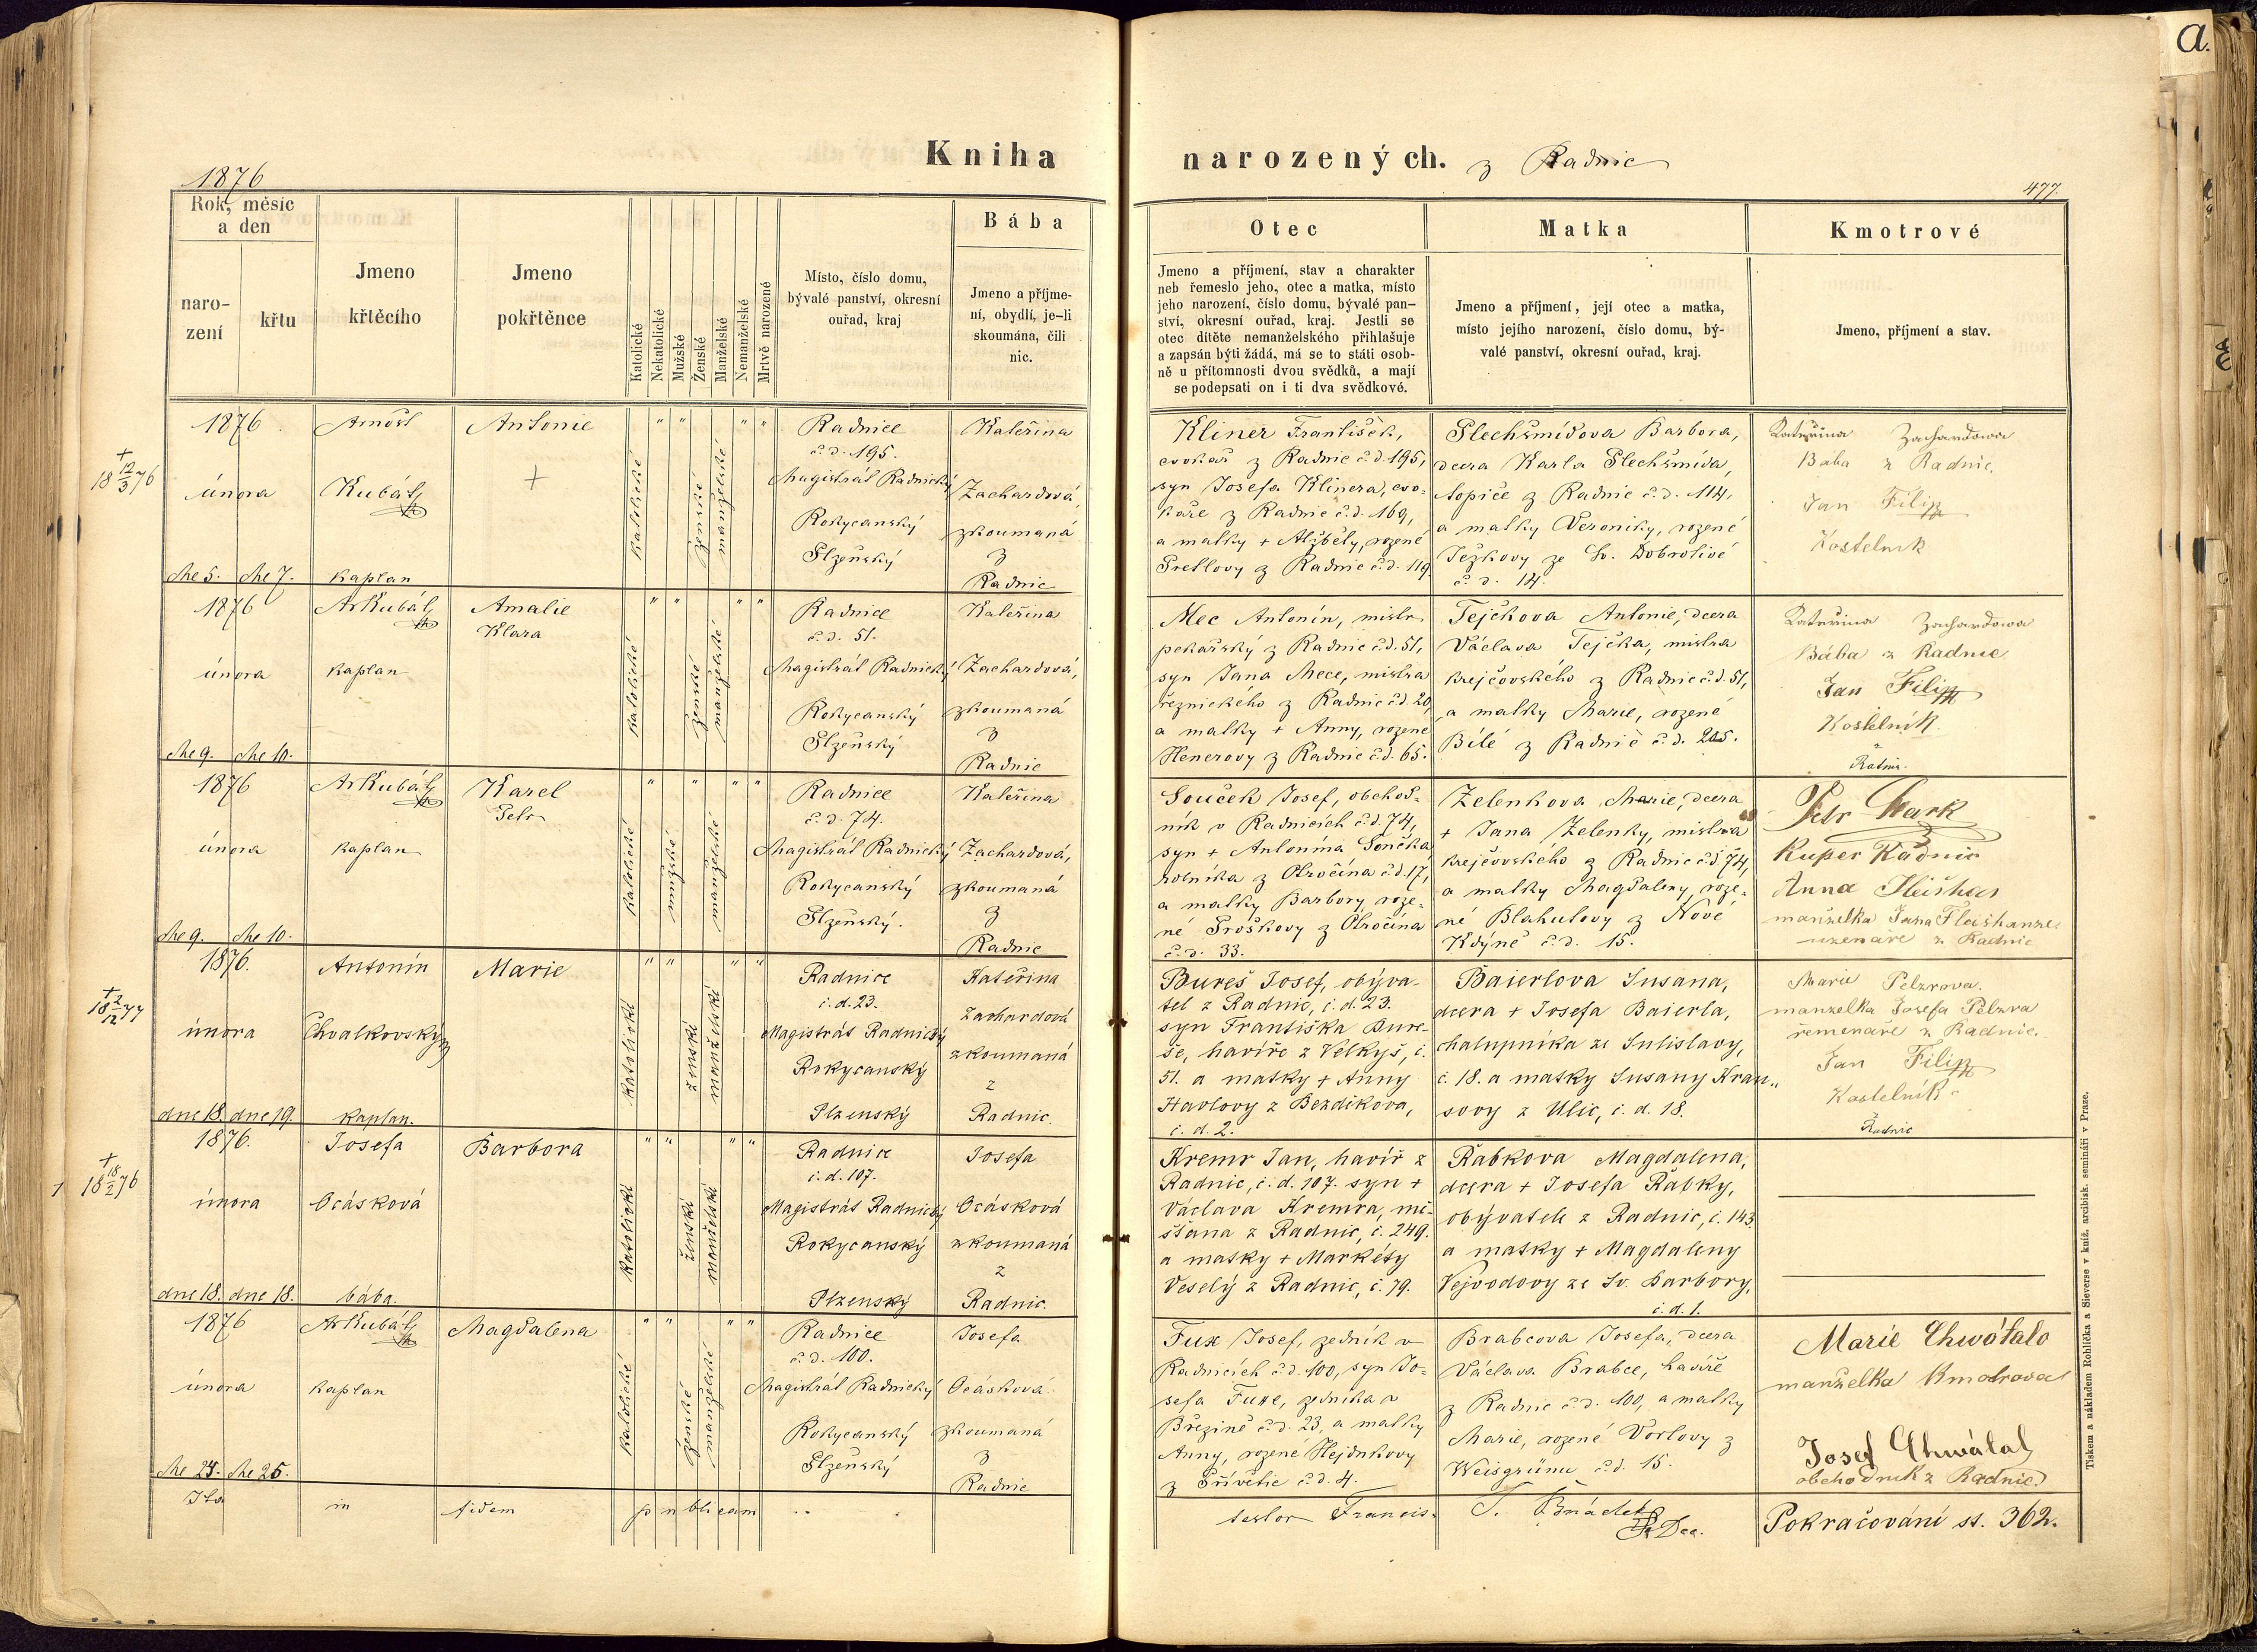 a.
Kniha narozených. z Radnic
1876
477.
Rok, měsíc
a den
naro-
zení
křtu
Jmeno
křtěcího
Jmeno
pokřtěnce
Katolické
Nekatolické
Mužské
Ženské
Manželské
Nemanželské
Mrtvě narozené
Místo, číslo domu,
bývalé panství, okresní
ouřad, kraj
Bába
Jmeno a příjme-
ní, obydlí, je-li
skoumána, čili
nic.
Otec
Jmeno a příjmení, stav a charakter
neb řemeslo jeho, otec a matka, místo
jeho narození, číslo domu, bývalé pan-
ství, okresní ouřad, kraj. Jestli se
otec dítěte nemanželského přihlašuje
a zapsán býti žádá, má se to státi osob-
ně u přítomnosti dvou svědků, a mají
se podepsati on i ti dva svědkové.
Matka
Jmeno a příjmení, její otec a matka,
místo jejího narození, číslo domu, bý-
valé panství, okresní ouřad, kraj.
Kmotrové
Jmeno, příjmení a stav.
+
18 12/3 76
1876
února
dne 5. dne 7.
Arnošt
Kubát
kaplan
Antonie
+
katolické
ženské
manželské
Radnice
č. d. 195.
Magistrát Radnický
Rokycanský
Plzeňský
Kateřina
Zachardová,
zkoumaná
z
Radnic
Kliner František,
cvokař z Radnic č. d. 195,
syn Josefa Klinera, cvo-
kaře z Radnic č. d. 169,
a matky + Alžběty, rozené
Pretlovy z Radnic č. d. 119.
Plechšmídova Barbora,
dcera Karla Plechšmída,
topiče z Radnic č. d. 114,
a matky Veroniky, rozené
Ježkovy ze Sv. Dobrotivé
č. d. 14.
Kateřina Zachardowa
Bába z Radnic.
Jan Filip
Kostelník
1876
února
dne 9. dne 10.
Ar Kubát
kaplan
Amalie
Klara
katolické
ženské
manželské
Radnice
č. d. 51.
Magistrát Radnický
Rokycanský
Plzeňský
Kateřina
Zachardová,
zkoumaná
z
Radnic
Mec Antonín, mistr
pekařský z Radnic č. d. 51,
syn Jana Mece, mistra
řeznického z Radnic č. d. 20,
a matky + Anny, rozené
Henerovy z Radnic č. d. 65.
Tejčkova Antonie, dcera
Václava Tejčka, mistra
krejčovského z Radnic č. d. 51,
a matky Marie, rozené
Bílé z Radnic č. d. 205.
Kateřina Zachardowa
Bába z Radnic
Jan Filip
Kostelník
z
Radnic.
1876
února
dne 9. dne 10.
Ar Kubát
kaplan
Karel
Petr
katolické
mužské
manželské
Radnice
č. d. 74.
Magistrát Radnický
Rokycanský
Plzeňský.
Kateřina
Zachardová,
zkoumaná
z
Radnic
Souček Josef, obchod-
ník v Radnicích č. d. 74,
syn + Antonína Součka
rolníka z Otročína č. d. 17,
a matky Barbory, roze-
né Proškovy z Otročína
č. d. 33.
Zelenkova Marie, dcera
+ Jana Zelenky, mistra
krejčovského z Radnic č. d. 74,
a matky Magdaleny, roze-
né Blahutovy z Nové
Kdýně č. d. 15.
Petr
Radnic
Anna
manželka Jana
uzenáře z Radnic
+
18 2/12 77
1876.
února
dne 18. dne 19.
Antonín
Chvalkovský
kaplan.
Marie
katolické
ženské
manželské
Radnice
č. d. 23.
Magistrát Radnický
Rokycanský
Plzenský
Kateřina
Zachardová
zkoumaná
z
Radnic.
Bureš Josef, obýva-
tel z Radnic, č. d. 23.
syn Františka Bure-
še, havíře z Velkyš, č.
51. a matky + Anny
Havlovy z Bezdíkova,
č. d. 2.
Baierlova Susana,
dcera + Josefa Baierla,
chalupníka ze Sulislavy,
č. 18. a matky Susany Krau-
sovy z Ulic, č. d. 18.
Marie Pelzrova.
manželka Josefa Pelzra
řemenáře z Radnic.
Jan Filip
Kostelník
Radnic
+
18 18/2 76
1876.
února
dne 18. dne 18.
Josefa
Ocásková
bába.
Barbora
katolické
ženské
manželské
Radnice
č. d. 107.
Magistrát Radnický
Rokycanský
Plzenský
Josefa
Ocásková
zkoumaná
z
Radnic.
Kremr Jan, havíř z
Radnic, č. d. 107. syn +
Václava Kremra, mě-
šťana z Radnic, č. 249.
a matky + Markéty
Veselý z Radnic, č. 79.
Řabkova Magdalena,
dcera + Josefa Řabky,
obývatele z Radnic, č. 143.
a matky + Magdaleny
Vejvodovy ze Sv. Barbory,
č. d. 1.
1876
února
dne 24. dne 25.
Ar Kubát
kaplan
Magdalena
katolické
ženské
manželské
Radnice
č. d. 100.
Magistrát Radnický
Rokycanský
Plzeňský
Josefa
Ocásková
zkoumaná
z
Radnic
Fux Josef, zedník v
Radnicích č. d. 100, syn Jo-
sefa Fuxe, zedníka v
Březině č. d. 23, a matky
Anny, rozené Hejdukovy
z Přívětic č. d. 4.
Brabcova Josefa, dcera
Václava Brabce, havíře
z Radnic č. d. 100, a matky
Marie, rozené Vorlovy z
Weisgrünu č. d. 15.
Marie Chwátalo
manželka Kmotrova
Josef Chwátal
obchodník z Radnic
Ita in fidem publicam
Francis.
Pokračování st. 362.
Tiskem a nákladem Rohlíčka a Sieverse v kníž. arcibisk. semináři v Praze.